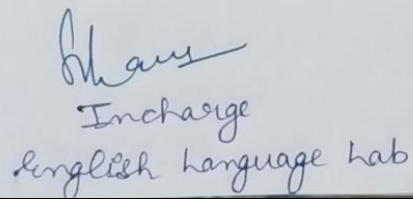 Incharge
English Language Lab